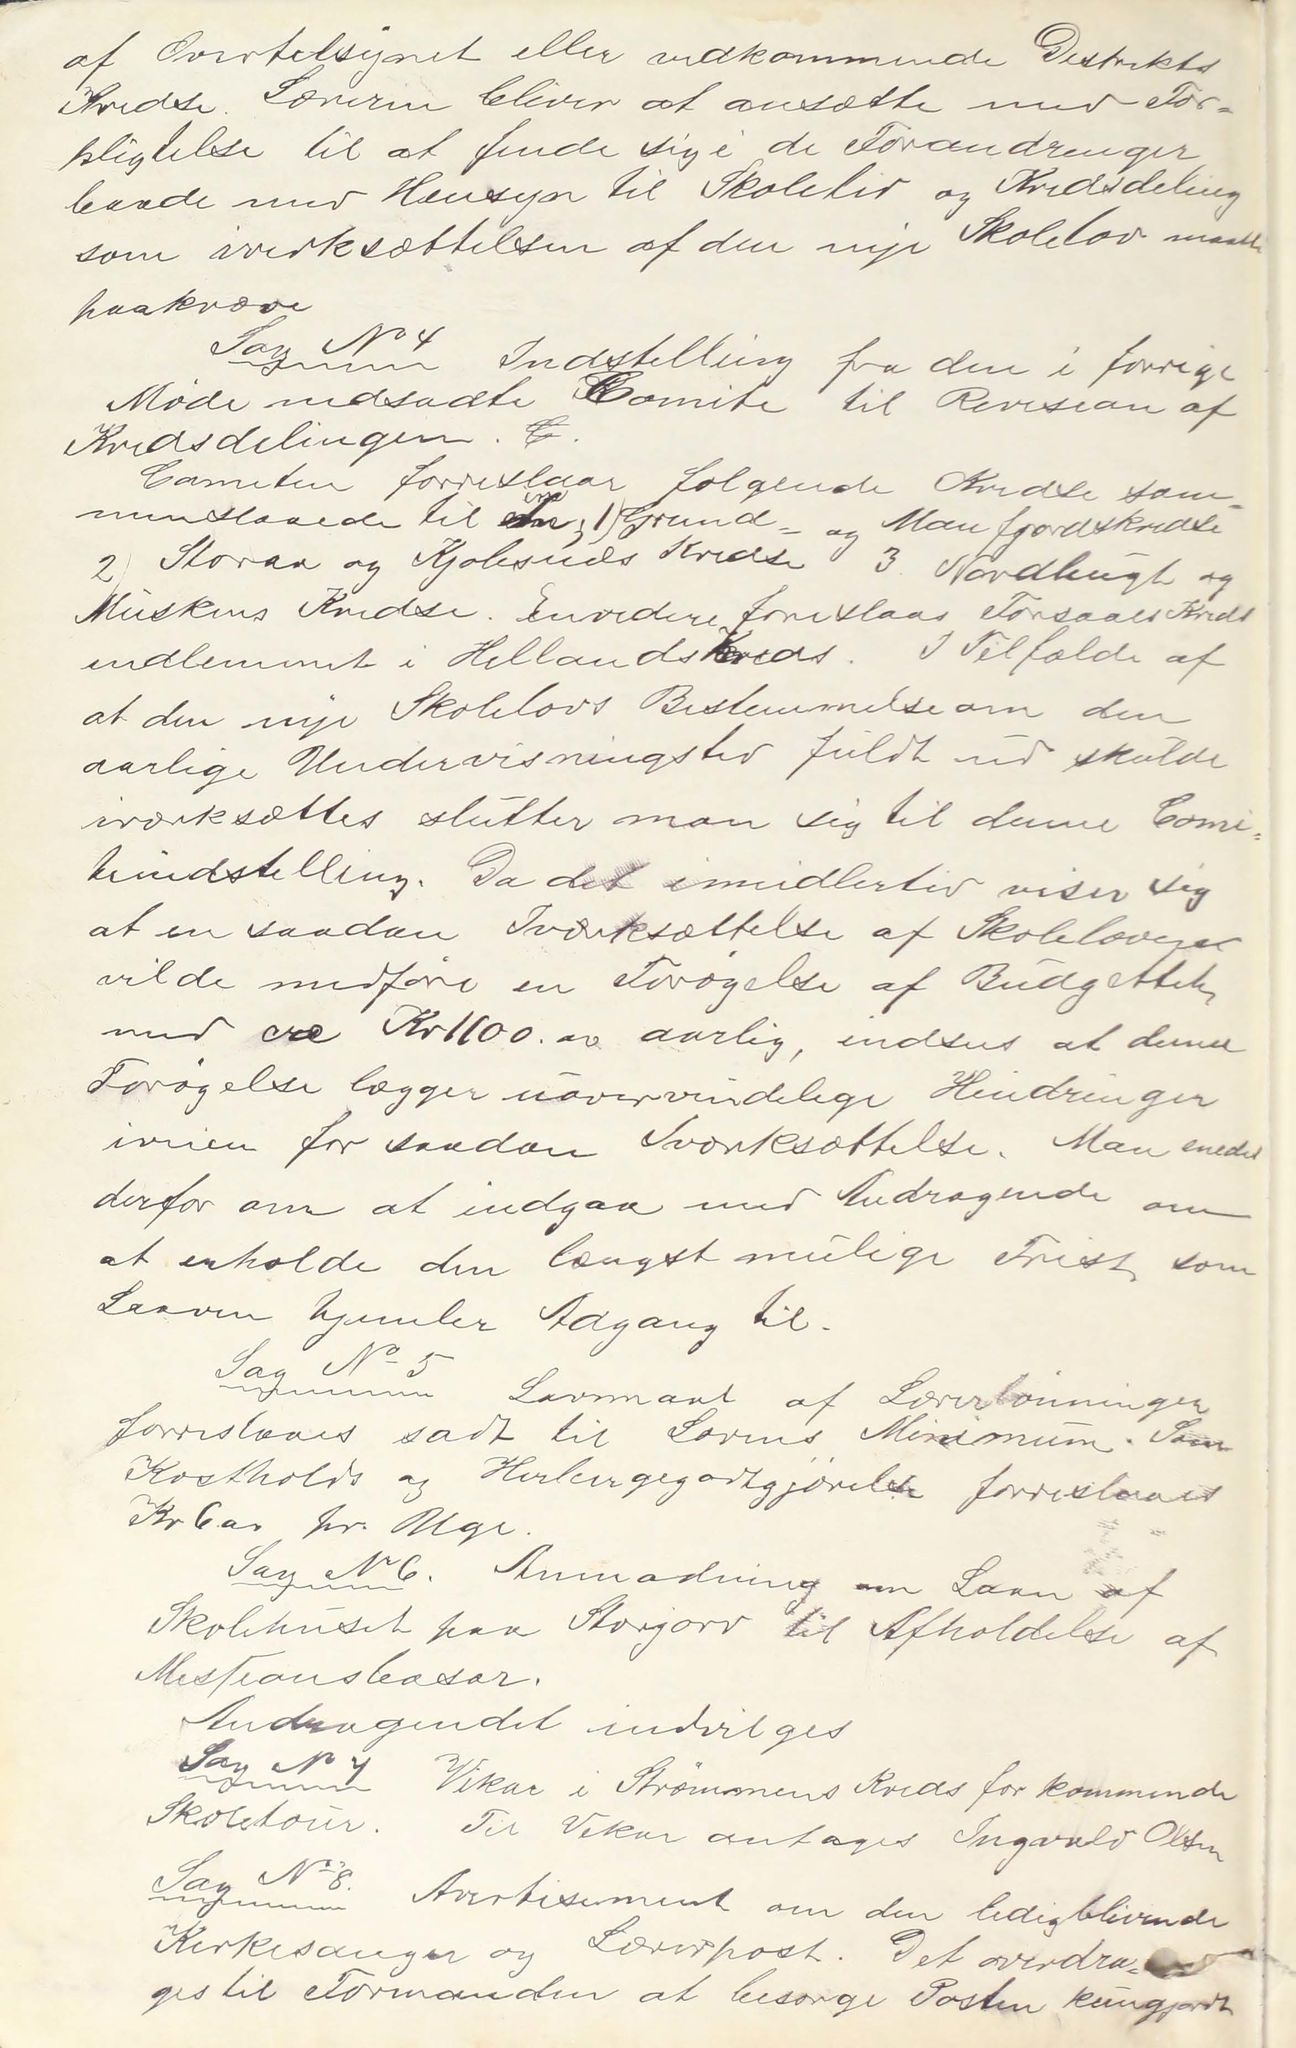 af Overtelsynet eller vedkommende Destrikts
Kredse. Lærerin bliver at ansætte med For-
pligtelse til at finde sig i de Forandringer
baade med Hensyn til Skoletid og Kredsdeling
som iverksættelsen af den nye Skolelov maatte
paakræve
Sag No 4 Indstelling fra den i forrige
Møde nedsadte Comite til Revisean af
Kredsdelingen.
Cometeen forreslaar følgende Kredse sam-
menslaaede til en; 1) Grund- og Manfjordskredse
2) Storaa og Kjølesnæs Kredse 3. Nordbugt og
Muskens Kredse. Envedere foreslaas Forsaaes Kreds
indlemmet i Hellands Kreds. I Tilfælde af
at den nye Skolelovs Bestemmelse om den
aarlige Undervisningstid fuldt ud skulde
iværksættes slutter man sig til denne Comi-
teindstelling. Da det imidlertid viser sig
at en saadan Iværksættelse af Skoleloven
vilde medføre en Forøgelse af Budgettet
med ca Kr 1100.00 aarlig, indsees at denne
Forøgelse lægger uovervindelege Hindringer
iveien for saadan Iværksættelse. Man enedes
derfor om at indgaa med Andragende om
at erholde den længst mulige Frist, som
Loven hjemler Adgang til.
Sag No 5 Lovmant af Lærerlønninger
forreslaaes sadt til Lovens Minimum. Som
Kostholds og Herbergegodtgjørelse forreslaaes
Kr 6.00 pr. Uge.
Sag No 6. Anmodning om Laan af
Skolehuset paa Storjord til Afholdelse af
Messionsbasar.
Andragendet indvilges
Sag No 7 Vikar i Strømmens Kreds for kommende
Skoletour. Til Vikar antages Ingvald Olsen
Sag No 8. Avertisement om den ledigblivende
Kirkesanger og Lærerpost. Det overdra-
ges til Formanden at besørge Posten kungjordt